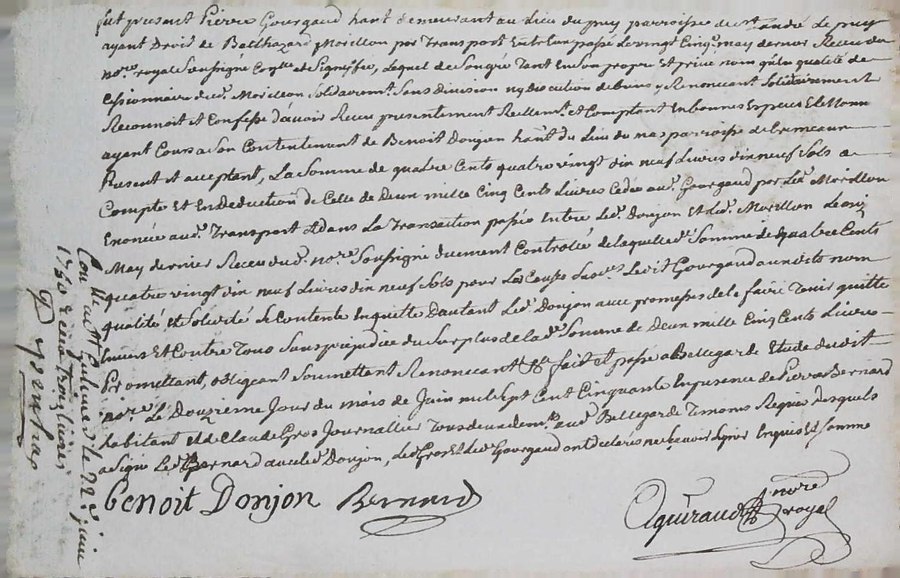 fut present Pierre Gourgaud hant demeurant au Lieu du puy parroisse de st André Le puy
ayant Droit de Balthazard Morillon par Transport Entre Eux passé Le vingt Cinq may dernier Receu du
nore royal Soussigné Conlle et Signiffié, Lequel de Son gré Tant En Son propre Et privé nom qu'en qualité de
Cessionnaire dud. Morillon Solidairemt Sans division ny discution de biens y Renoncant Solidairement
Reconnoit et Confesse d'avoir Receu presentement Reellemt et Comptant En bonnes Especes Et Monn
ayant Cours a Son Contentement de Benoit Donjon hant du Lieu du mas parroisse de
Present et acceptant, La Somme de quatre Cents quatre vingt dix neuf Livres dix neuf Sols a
Compte Et En Deduction de Celle de Deux mille Cinq Cents Livres Cedée aud. Gourgaud par Led. Morillon
Enoncée aud. Transport Et dans La Transaction passée Entre Led. Donjon Et Led. Morillon Le
May dernier Receu dud. nore Soussigné duement Controllée de laquelle d. Somme de quatre Cents
quatre vingt dix neuf Livres dix neuf Sols pour Les Causes Led. Gourgaud aux dits nom
qualité, et Solidité Se Contente En quitte D'autant Led. Donjon avec promesses de le faire Tenir quitte
Envers Et Contre Tous Sans prejudice du Surplus de La de Somme de Deux mille Cinq Cents Livres
Promettant, obligeant Soumettant Renoncant & fait et passé a Bellegarde Etude dudit
nore. Le Douzieme Jour du mois de Juin mil Sept Cent Cinquante En presence de Pierre Bernard
habitant Et de Claude Gros Journallier Tous deux demt aud. Bellegarde Temoins Requis Lesquels
a Signé Led. Bernard avec led. Donjon, Led. Gros Et Led. Gourgaud ont declaré ne Scavoir Signer Enquis Et Sommé
Benoit Donjon Bernard
Aguiraud nore royal
Conlle a St Galmier le 22e juin
1750 Recu trois Livres